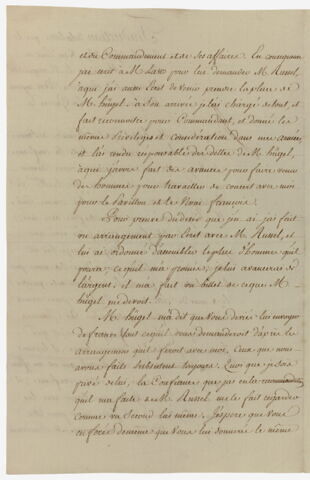 et du Commandement et de ses affaires. En consequence
j'ay ecrit a M. Law pour lui demander M. Russel,
a qui j'ai aussi ecrit de venir prendre la place de
M. Hügel. à Son arrivée je l'ai chargé de tout, et
fait reconnoitre pour Commandant, et donné les
même Privileges et considération dans mon armée
et l'ai rendu responsable des dettes de M. hügel,
a qui j'avois fait des avances pour faire venir
des hommes pour travailler de concert avec moi
pour le Pavillon et le Nom françois.
Pour venir du desir que j'en ai j'ai fait
un arrangement par Ecrit avec M. Russel, et
lui ai ordonné d'assembler le plus d'hommes qu'il
pourra; ce qu'il m'a promis; je lui avancerai de
l'argent, et m'a fait un billet de ce que M.
hügel me devoit.
M. hügel m'a dit que Vous deviez lui envoyer
de france tout ce qu'il vous demanderoit d'après les
arrangemens qu'il feroit avec moi, Ceux que nous
avons faits subsistent toujours. Quoi que je sois
privé de lui, la Confiance que j'ai en la recommandation
qu'il m'a faite de M. Russel me le fait regarder
comme un Second lui même. J'espere que vous
en ferés de même et que Vous lui donnerés le même